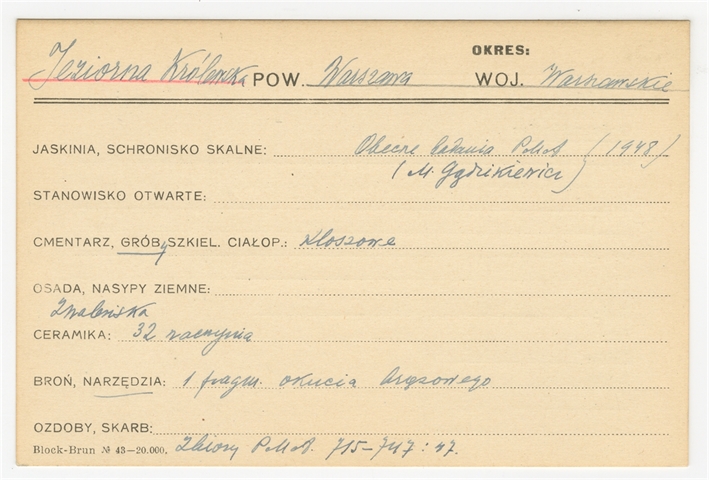 OKRES:
Jeziorna Królewska POW. Warszawa WOJ. Warszawskie
JASKINIA, SCHRONISKO SKALNE: Obecne badania P.M.A. (1948)
(M. Gądzikiewicz)
STANOWISKO OTWARTE:
CMENTARZ, GRÓBy SZKIEL. CIAŁOP.: kloszowe
OSADA, NASYPY ZIEMNE:
Znaleziska
CERAMIKA: 32 naczynia
BROŃ, NARZĘDZIA: 1 fragm. okucia brązowego
OZDOBY, SKARB:
Block-Brun № 43-20.000. Zbiory P.M.A. 715-747:47.